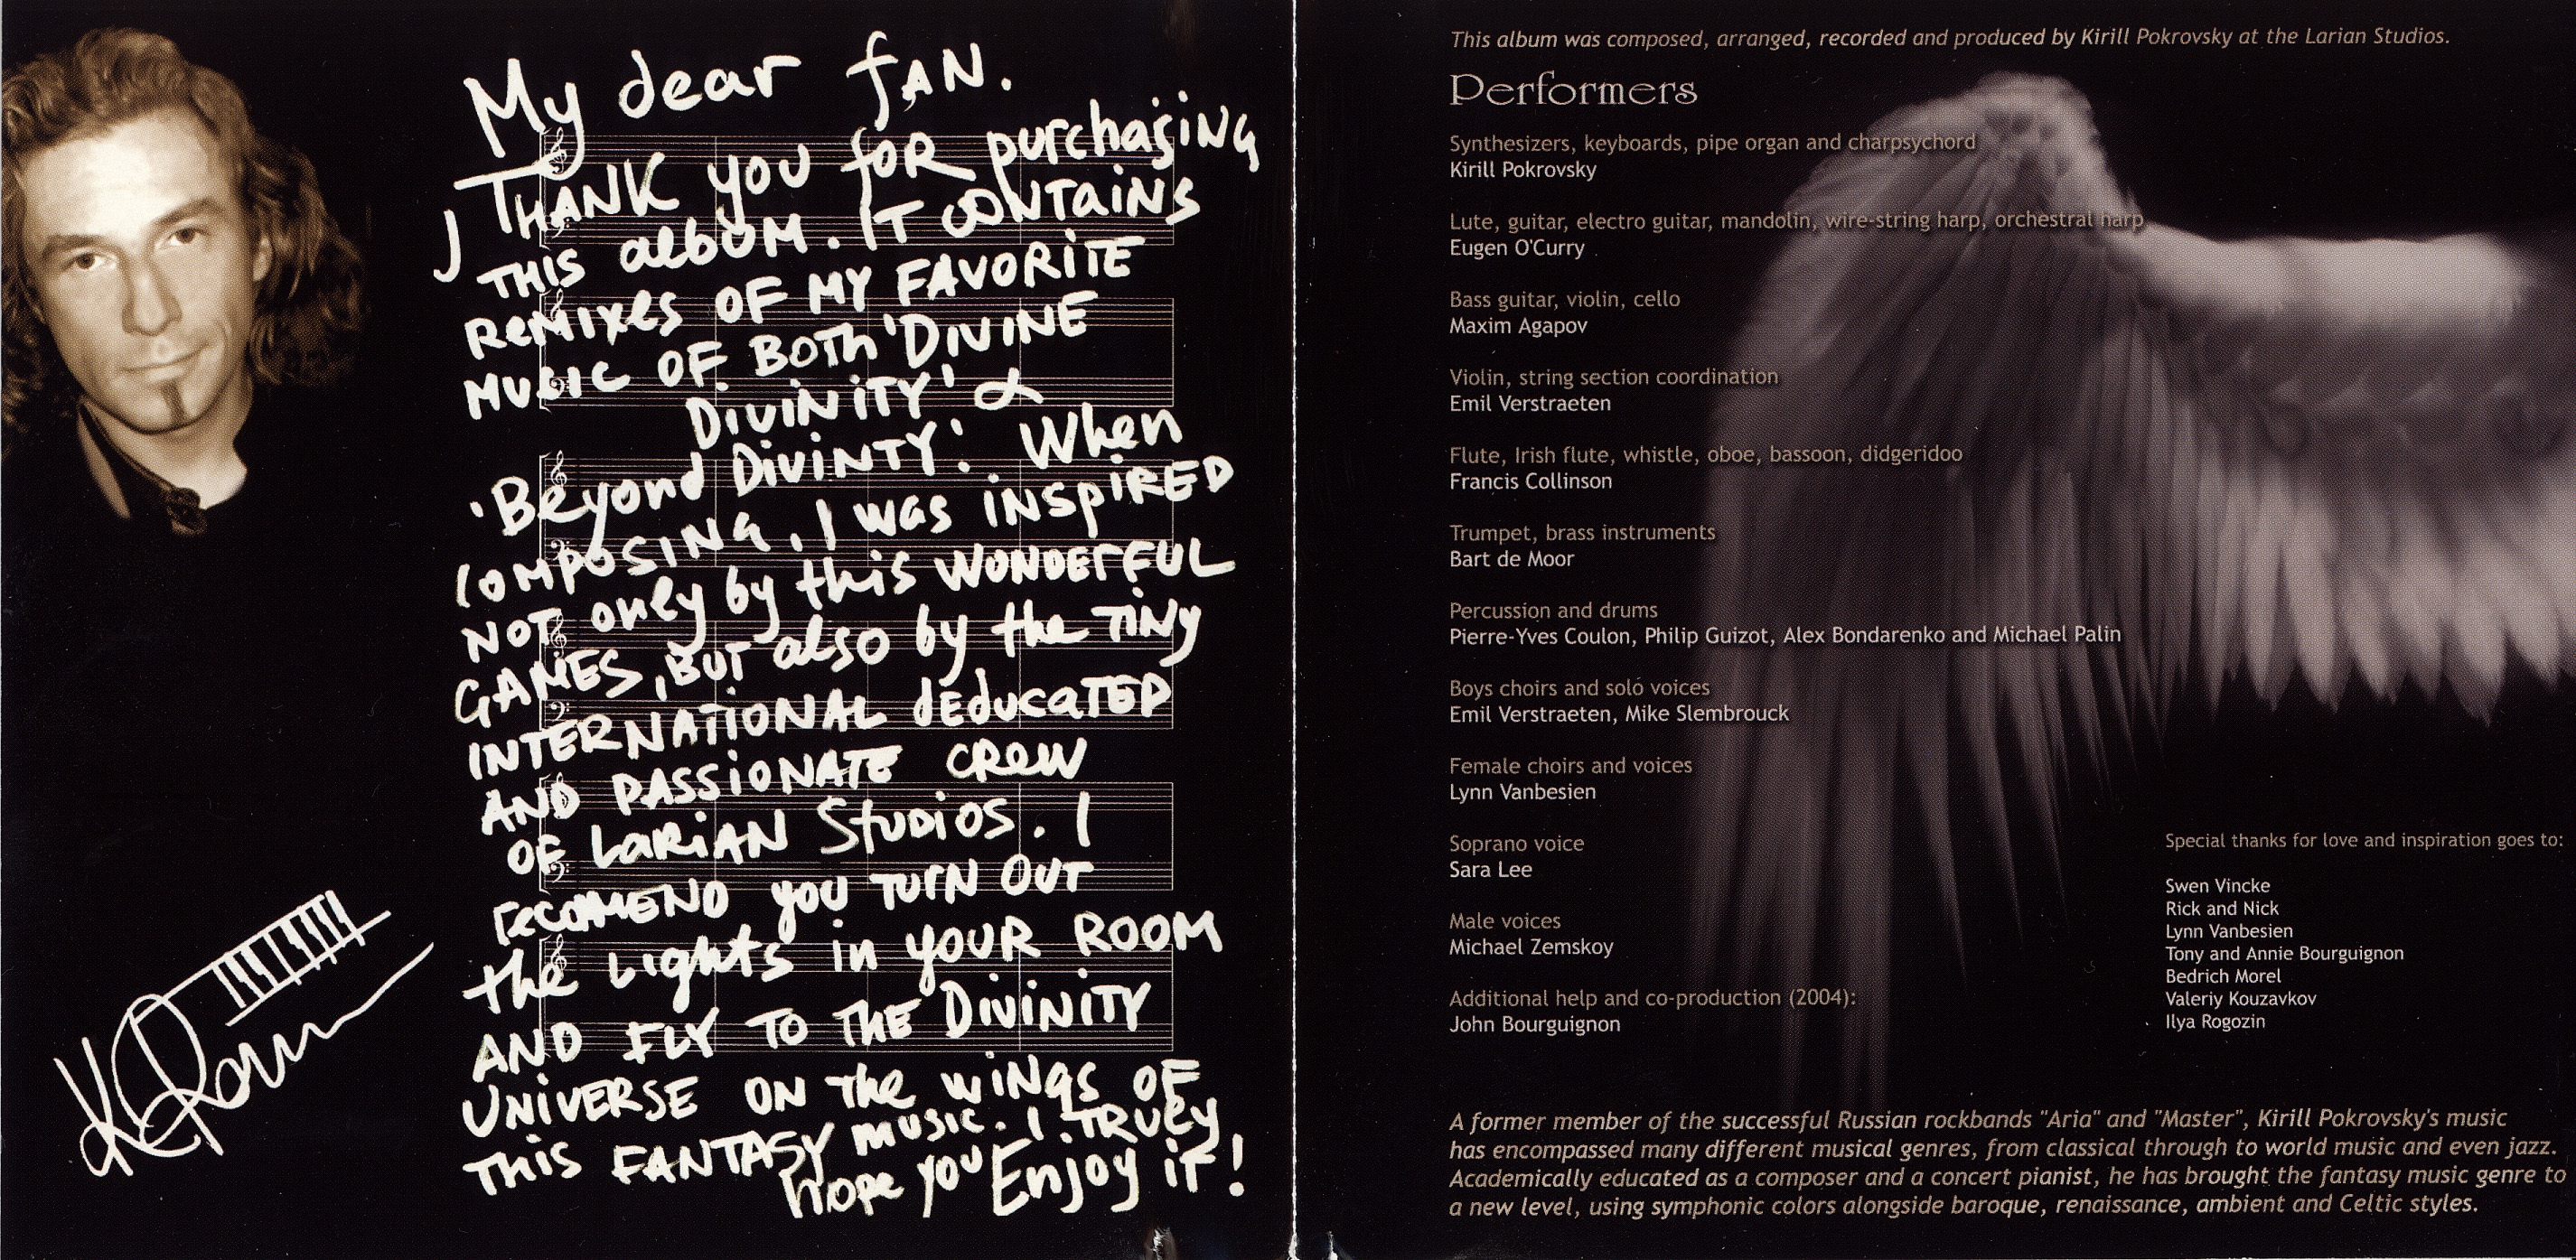 My dear fAN.
I THANK YOU fOR purchasing
THIS albUM. IT CONTAINS
REMIXES OF MY FAVORITE
MUSIC OF BOTH 'DIVINE
DIVINITY' &
'Beyond DIVINTY'. When
COMPOSING, I was INSPIRED
NOT only by this WONDERFUL
GAMES, BUT also by the TINY
INTERNATIONAL dEducaTED
AND PASSIONATE CREW
OF LARIAN STUDIOS. I
recOMEND you TURN OUT
the Lights in YOUR ROOM
AND FLY TO THE DIVINITY
UNIVERSE ON The WINGS OF
THIS FANTASY MUSIC. I TRULY
hope you Enjoy iT!
This album was composed, arranged, recorded and produced by Kirill Pokrovsky at the Larian Studios.
Performers
Synthesizers, keyboards, pipe organ and charpsychord
Kirill Pokrovsky
Lute, guitar, electro guitar, mandolin, wire-string harp, orchestral harp
Eugen O'Curry
Bass guitar, violin, cello
Maxim Agapov
Violin, string section coordination
Emil Verstraeten
Flute, Irish flute, whistle, oboe, bassoon, didgeridoo
Francis Collinson
Trumpet, brass instruments
Bart de Moor
Percussion and drums
Pierre-Yves Coulon, Philip Guizot, Alex Bondarenko and Michael Palin
Boys choirs and solo voices
Emil Verstraeten, Mike Slembrouck
Female choirs and voices
Lynn Vanbesien
Soprano voice
Sara Lee
Male voices
Michael Zemskoy
Additional help and co-production (2004):
John Bourguignon
Special thanks for love and inspiration goes to:
Swen Vincke
Rick and Nick
Lynn Vanbesien
Tony and Annie Bourguignon
Bedrich Morel
Valeriy Kouzavkov
Ilya Rogozin
A former member of the successful Russian rockbands "Aria" and "Master", Kirill Pokrovsky's music
has encompassed many different musical genres, from classical through to world music and even jazz.
Academically educated as a composer and a concert pianist, he has brought the fantasy music genre to
a new level, using symphonic colors alongside baroque, renaissance, ambient and Celtic styles.